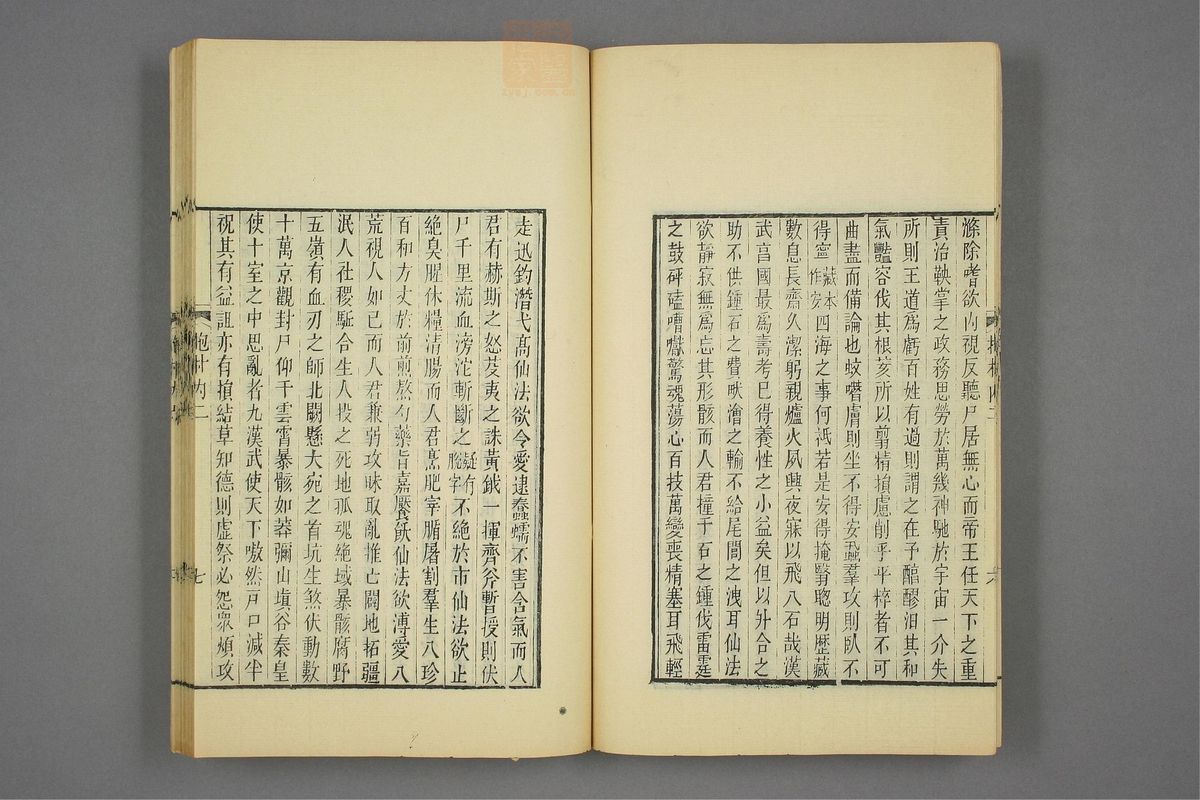 滌除嗜欲內視反聽尸居無心而帝王任天下之重
責治鞅掌之政務思勞於萬幾神馳於宇宙一介失
所則王道爲虧百姓有過則謂之在予醇醪汨其和
氣豔容伐其根荄所以翦精損慮削乎平粹者不可
曲盡而備論也蚊噆膚則坐不得安蝨羣攻則臥不
得寧藏本作安四海之事何祗若是安得掩翳聰明歷藏
數息長齋久潔躬親爐火夙興夜寐以飛八石哉漢
武享國最爲壽考已得養性之小益矣但以升合之
助不供鍾石之費畎澮之輸不給尾閭之洩耳仙法
欲靜寂無爲忘其形骸而人君撞千石之鍾伐雷霆
之鼓砰磕嘈囐驚魂蕩心百技萬變喪精塞耳飛輕
走迅釣潛弋高仙法欲令愛逮蠢蠕不害含氣而人
君有赫斯之怒芟夷之誅黃鉞一揮齊斧暫授則伏
尸千里流血滂沱斬斷之疑有脫字不絕於市仙法欲止
絕臭腥休糧清腸而人君烹肥宰腯屠割羣生八珍
百和方丈於前煎熬勺藥旨嘉饜飫仙法欲溥愛八
荒視人如己而人君兼弱攻昧取亂推亡闢地拓疆
泯人社稷駈合生人投之死地孤魂絕域暴骸腐野
五嶺有血刃之師北闕懸大宛之首坑生煞伏動數
十萬京觀封尸仰干雲霄暴骸如莽彌山塡谷秦皇
使十室之中思亂者九漢武使天下嗷然戸口減半
祝其有益詛亦有損結草知德則虛祭必怨衆煩攻
抱朴內二
七